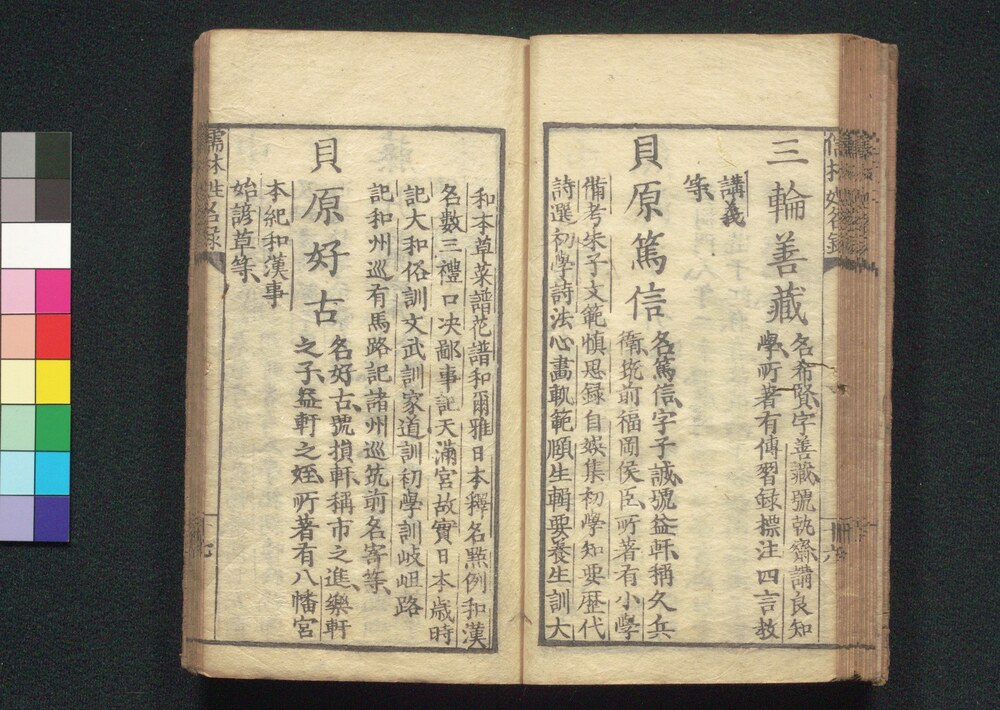 三輪善藏
名希賢字善藏號執齋講良知
學所著有傳習録標注四言教
講義
等
貝原篤信
名篤信字子誠號益軒稱久兵
衛筑前福岡侯臣所著有小學
備考朱子文範慎思録自娯集初學知要歴代
詩選初學詩法心畫軌範頤生輯要養生訓大
和本草菜譜花譜和爾雅日本釋名點例和漢
名數三禮口决鄙事記天滿宮故實日本歳時
記大和俗訓文武訓家道訓初學訓岐岨路
記和州巡有馬路記諸州巡筑前名寄等
貝原好古
名好古號損軒稱市之進樂軒
之子益軒之姪所著有八幡宮
本紀和漢事
始諺草等
儒林姓名録
七